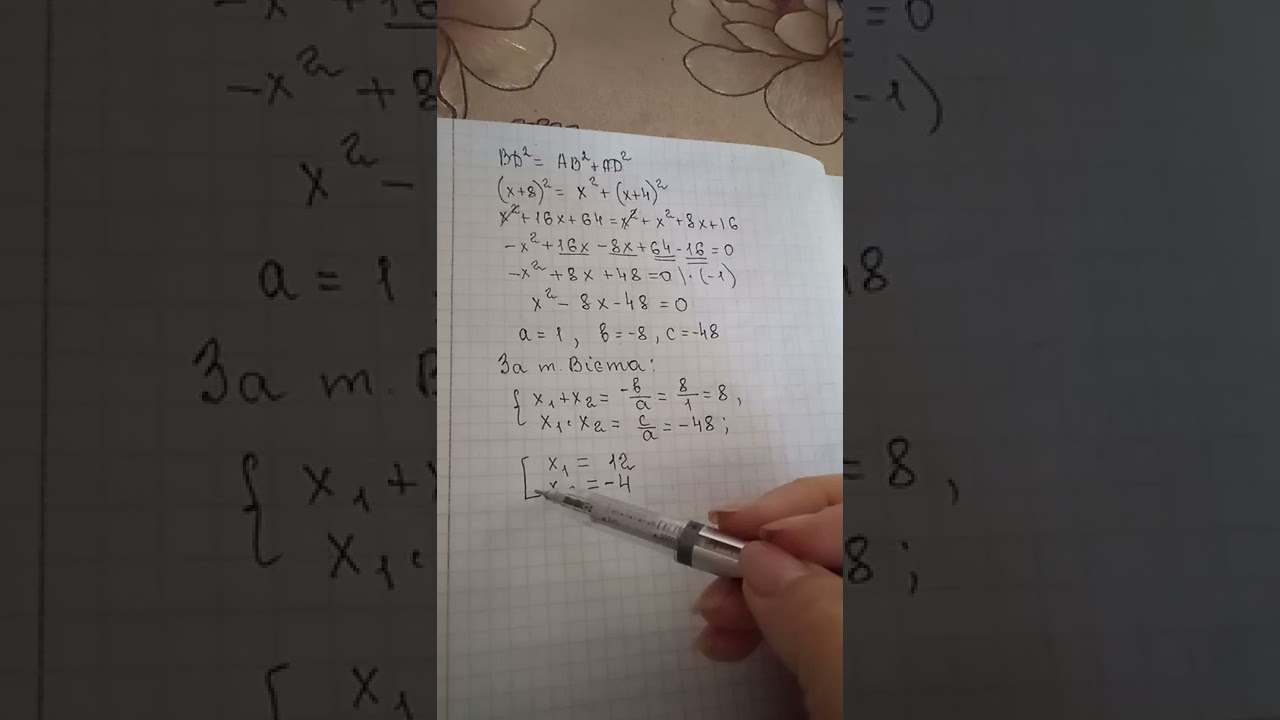 BD² = AB² + AD²
(x+8)² = x² + (x+4)²
x² + 16x + 64 = x² + x² + 8x + 16
-x² + 16x - 8x + 64 - 16 = 0
-x² + 8x + 48 = 0 | · (-1)
x² - 8x - 48 = 0
a = 1, b = -8, c = -48
За т. Вієта:
{ x₁ + x₂ = -b/a = 8/1 = 8,
x₁ · x₂ = c/a = -48;
[ x₁ = 12
x₂ = -4